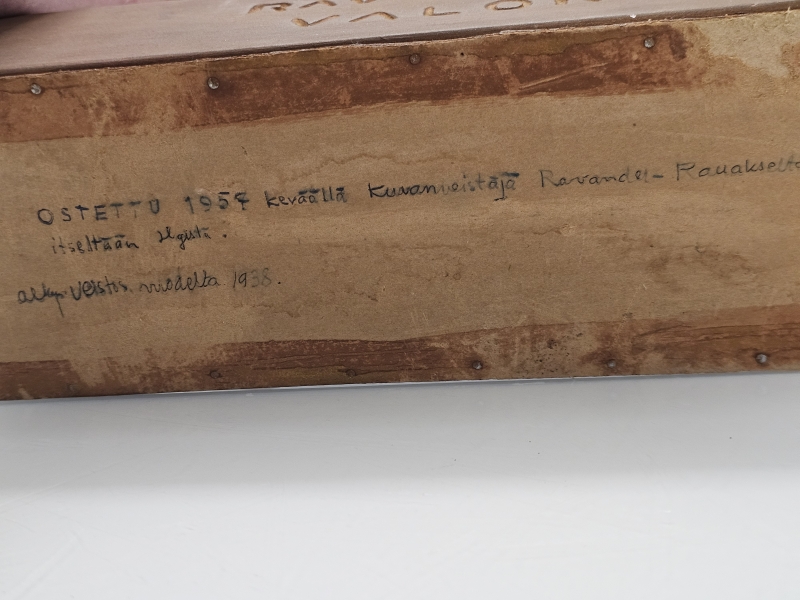 VALON
OSTETTU 1957 keväällä Kuvanveistäjä Ravander-Rauakselta
itseltään Hgistä.
alkup. veistos vuodelta 1938.